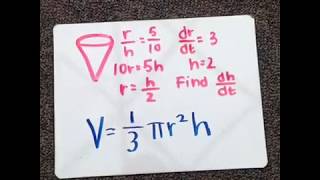 r/h = 5/10 dr/dt = 3
10r = 5h h = 2
r = h/2 Find dh/dt
V = 1/3 πr²h